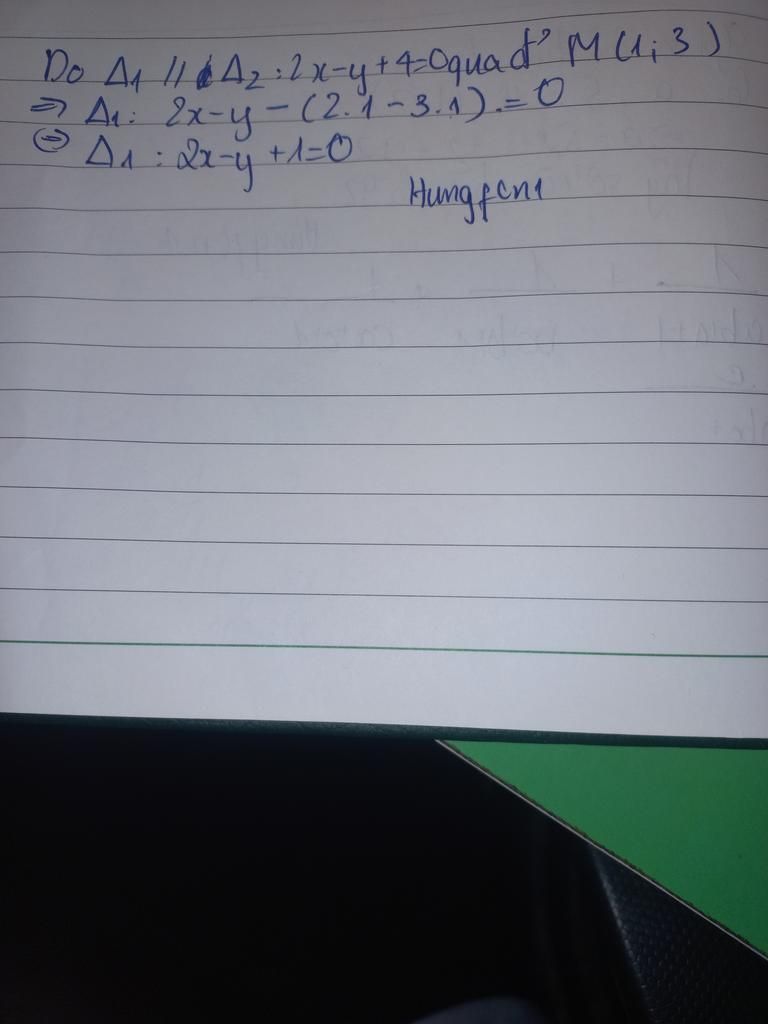 Do Δ1 // Δ2 : 2x-y+4=0 qua đ' M(1; 3)
=> Δ1: 2x-y-(2.1-3.1).=0
<=> Δ1: 2x-y+1=0
Hungfcn1